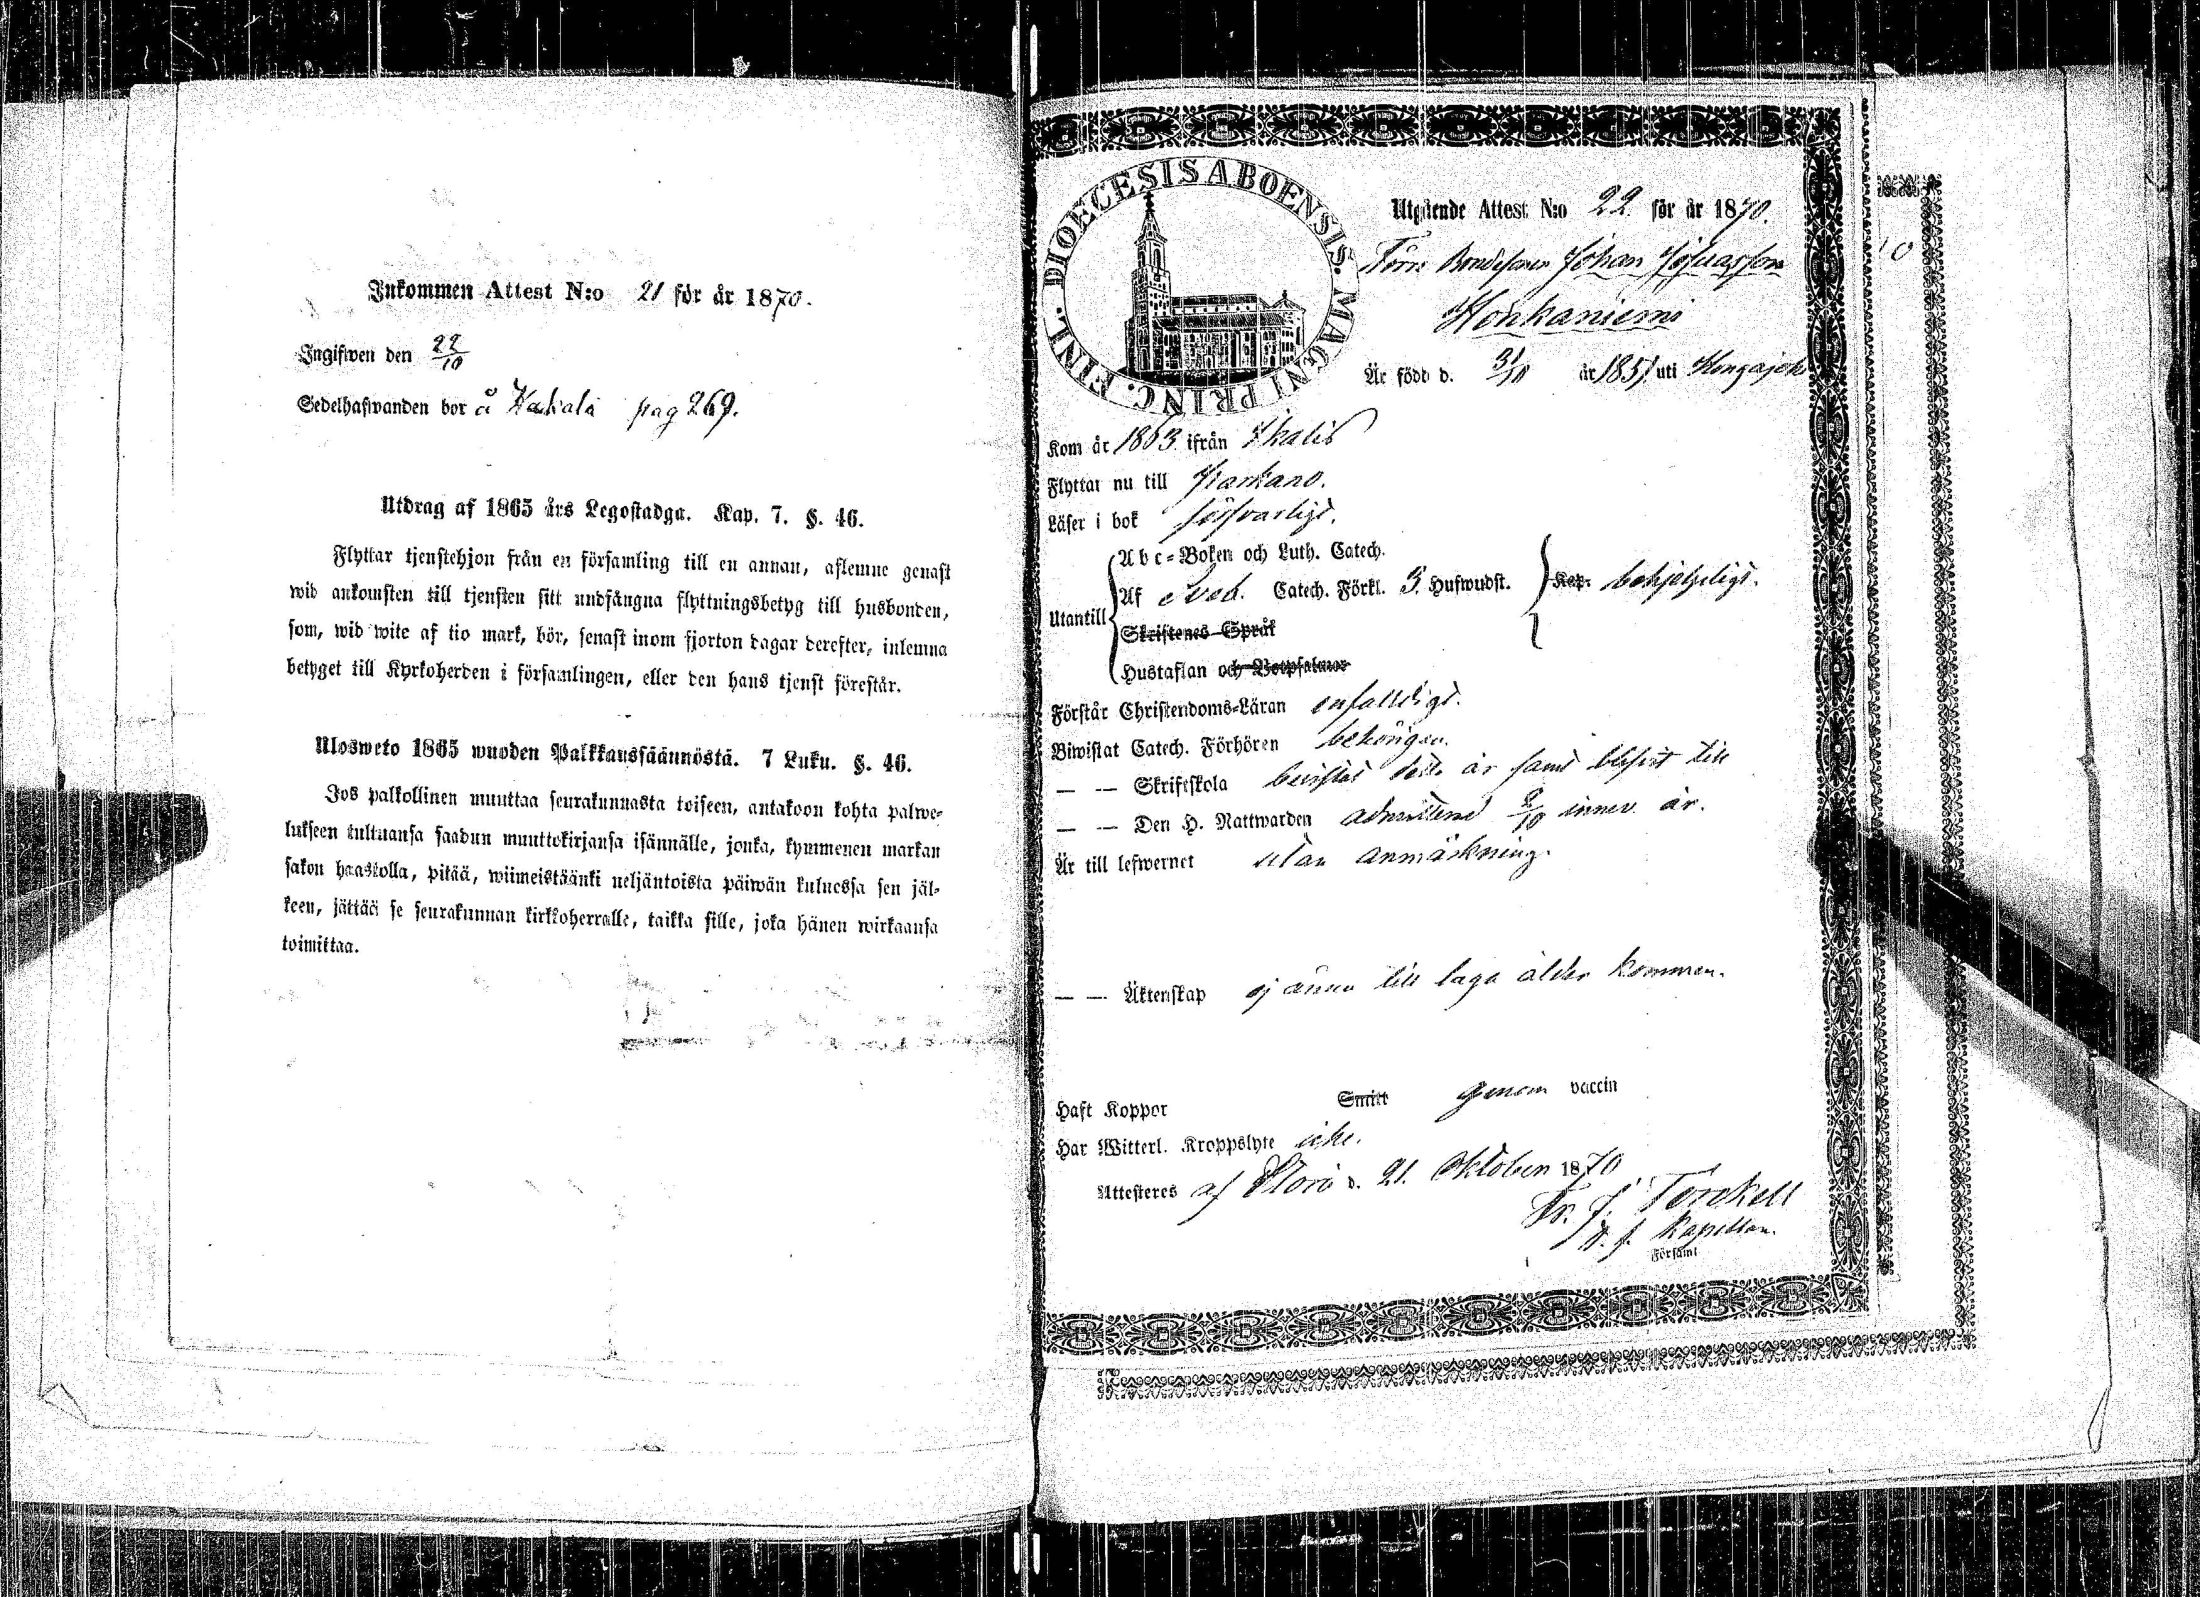 Inkommen Attest N:o 21 för år 1870.
Ingifwen den 22/10
Sedelhafwanden bor å Kackala pag 269.
Utdrag af 1865 års Legostadga. Kap. 7. §. 46.
Flyttar tjenstehjon från en församling till en annan, aflemne genast
wid ankomsten till tjensten sitt undfångna flyttningsbetyg till husbonden,
som, wid wite af tio mark, bör, senast inom fjorton dagar derefter, inlemna
betyget till Kyrkoherden i församlingen, eller den hans tjenst förestår.
Ulosweto 1865 wuoden Palkkaussäännöstä. 7 Luku. §. 46.
Jos palkollinen muuttaa seurakunnasta toiseen, antakoon kohta palwe-
lukseen tultuansa saadun muuttokirjansa isännälle, jonka, kymmenen markan
sakon haastolla, pitää, wiimeistäänki neljäntoista päiwän kuluessa sen jäl-
keen, jättää se seurakunnan kirkkoherralle, taikka sille, joka hänen wirkaansa
toimittaa.
DIOECESIS ABOENSIS. MAGNI PRINC. FINL.
Utgående Attest N:o 22. för år 1870.
Förre Bondesonen Johan Josuasson
Honkaniemi
Är född d. 31/10 år 1851 uti Kongasjoki
Kom år 1853 ifrån Ikalis
Flyttar nu till Parkano.
Läser i bok försvarligt.
Utantill
Abc-Boken och Luth. Catech.
Af Sved. Catech. Förkl. 3. Hufwudst. Kap. behjelpligt.
Skriftenes Språk
Hustaflan och Botpsalmor
Förstår Christendoms-Läran enfalldigt.
Biwistat Catech. Förhören behörigen.
— — Skriftskola bevistat detta år samt blifvit till
— — Den H. Nattwarden admitterad 2/10 innev. år.
Är till lefwernet utan anmärkning.
— — Äktenskap ej ännu till laga ålder kommen.
Haft Koppor Smitt genom vaccin
Har Witterl. Kroppslyte icke.
Attesteres af Storo d. 21. Oktober 1870
Fr. J. Torckell
v. f. Kapellan.
Församl